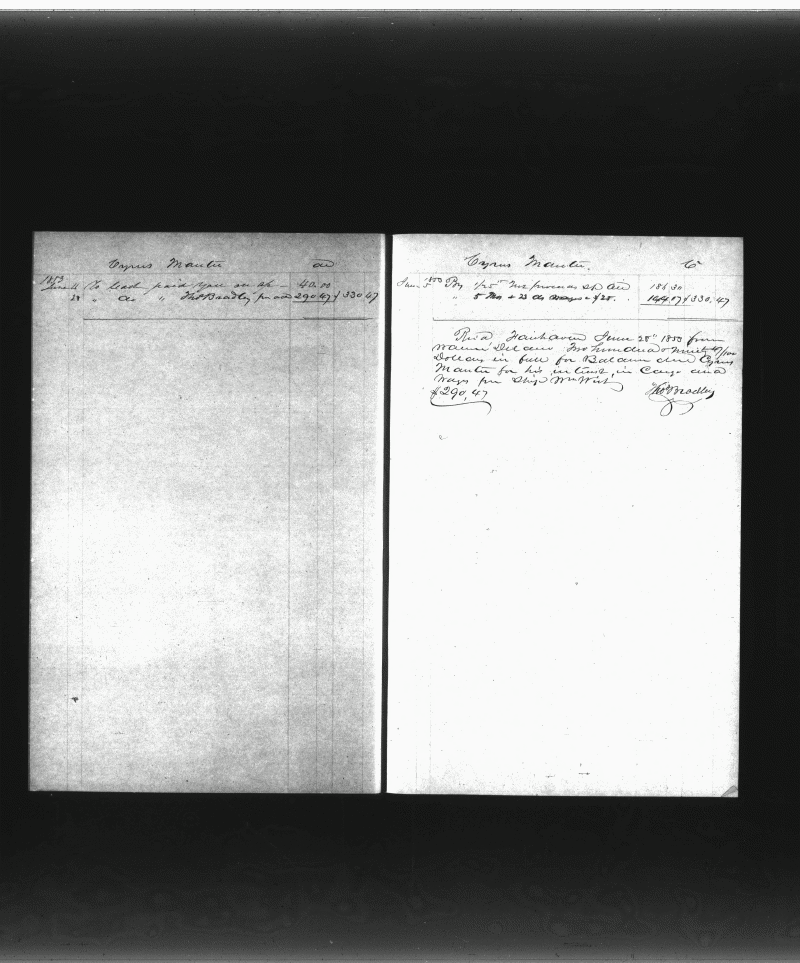 Cyrus Manter
1853
June 4 To Cash paid you on a/c 40.00
28 " do " Thos Bradley pr ord 290.47 $330.47
Cyrus Manter. Cr
June 5 By 1/25" Nt proceeds Sp Oil 186 30
" 5 Mos & 23 ds wages @ $25. 144.17 $330.47
Recd Fairhaven June 28" 1853 from
Warren Delano Two hundred & Ninety 47/100
Dollars in full for Balance due Cyrus
Manter for his interest in Cargo and
Wages per Ship Wm Wirt
$290,47 Thos Bradley